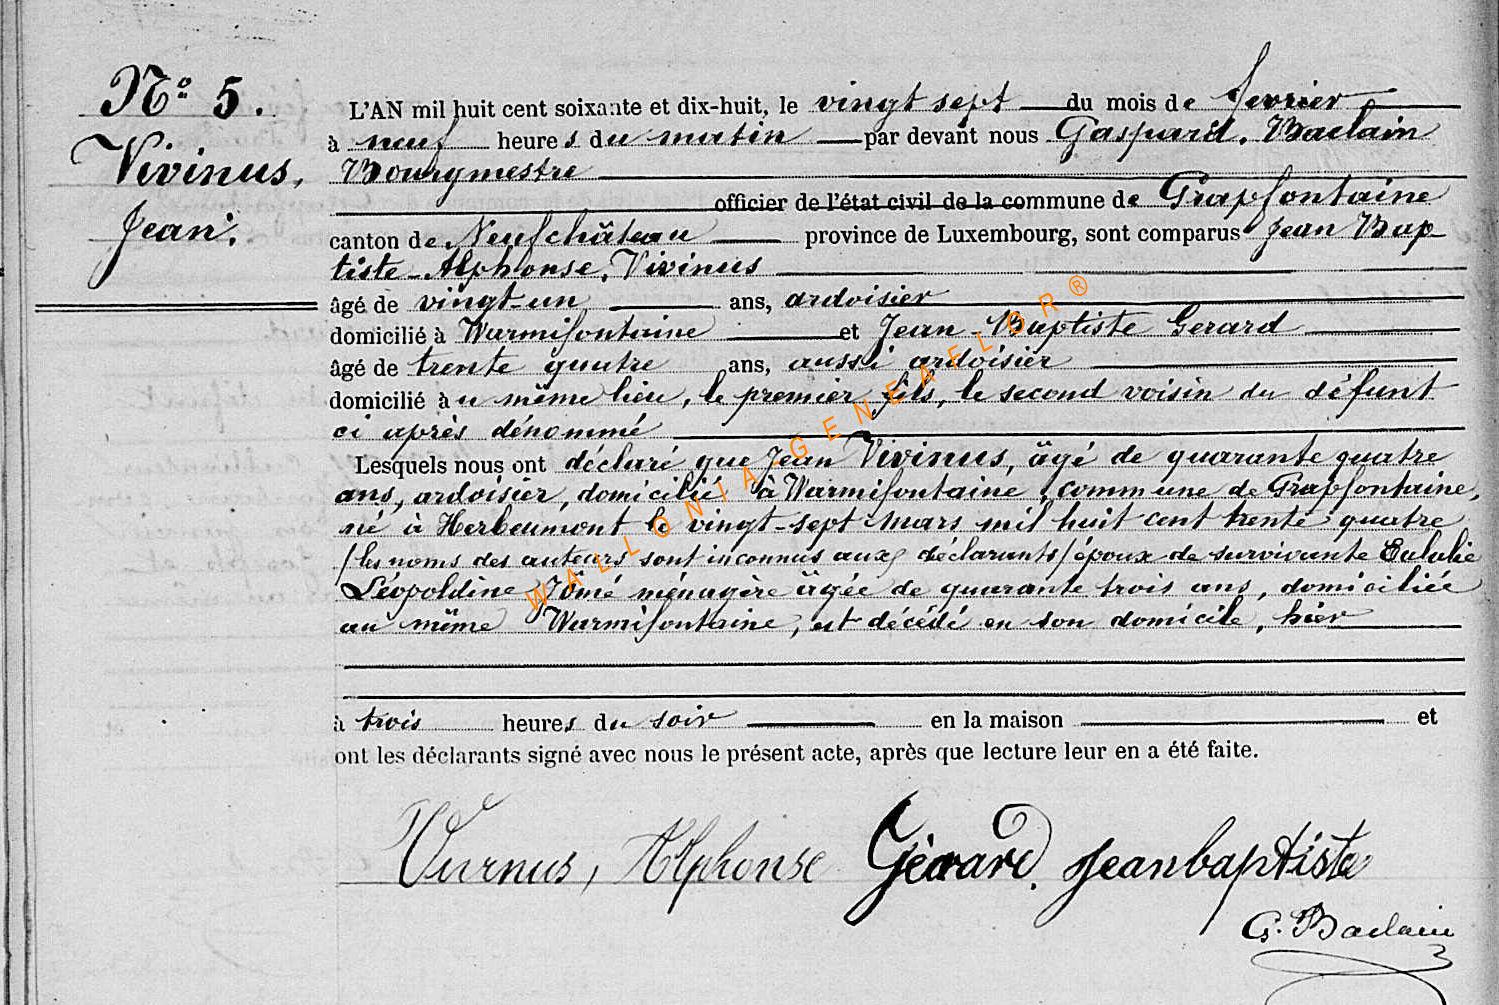 No 5.
Vivinus,
Jean.
L'AN mil huit cent soixante et dix-huit, le vingt sept du mois de fevrier
à neuf heures du matin par devant nous Gaspard. Baclain
Bourgmestre
officier de l'état civil de la commune de Grapfontaine
canton de Neufchâteau province de Luxembourg, sont comparus Jean Bap-
tiste-Alphonse, Vivinus
âgé de vingt-un ans, ardoisier
domicilié à Warmifontaine et Jean-Baptiste Gerard
âgé de trente quatre ans, aussi ardoisier
domicilié au même lieu, le premier fils, le second voisin du défunt
ci après dénommé
Lesquels nous ont déclaré que Jean Vivinus, âgé de quarante quatre
ans, ardoisier, domicilié à Warmifontaine, commune de Grapfontaine,
né à Herbeumont le vingt-sept mars mil huit cent trente quatre
(les noms des auteurs sont inconnus aux déclarants) époux de survivante Eulalie
Léopoldine Jômé ménagère âgée de quarante trois ans, domiciliée
au même Warmifontaine, est décédé en son domicile, hier
à trois heures du soir en la maison et
ont les déclarants signé avec nous le présent acte, après que lecture leur en a été faite.
Vivinus, Alphonse Gérard. Jeanbaptiste
G. Baclain
WALLONIA-GENEAFLOR®